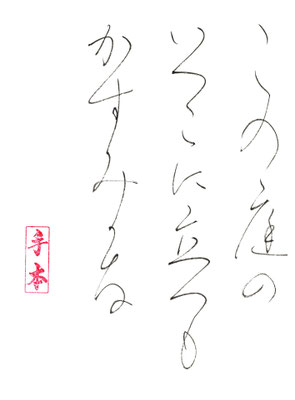 この庭の
いつこに立つも
かすみかな
手本